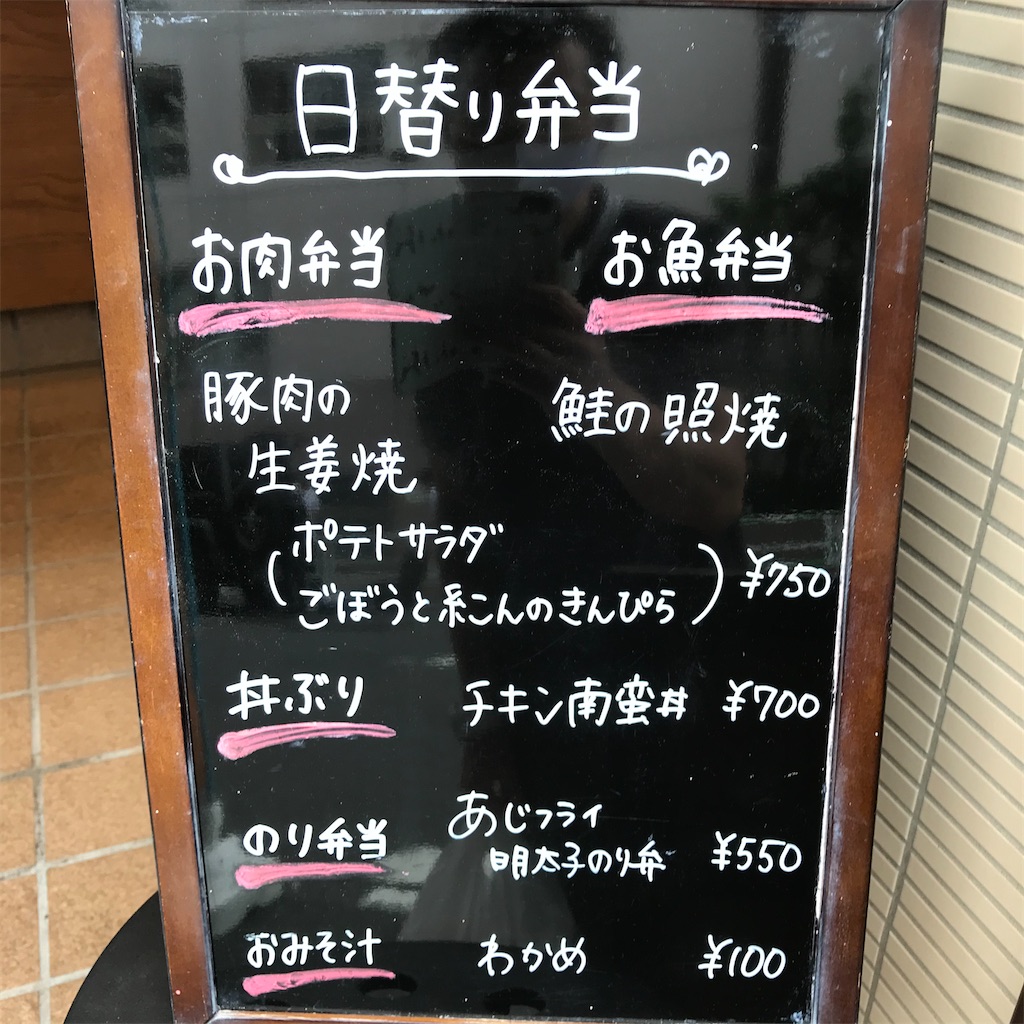 日替り弁当
お肉弁当 お魚弁当
豚肉の
生姜焼 鮭の照焼
(ポテトサラダ
ごぼうと糸こんのきんぴら) ¥750
丼ぶり チキン南蛮丼 ¥700
のり弁当 あじフライ
明太子のり弁 ¥550
おみそ汁 わかめ ¥100